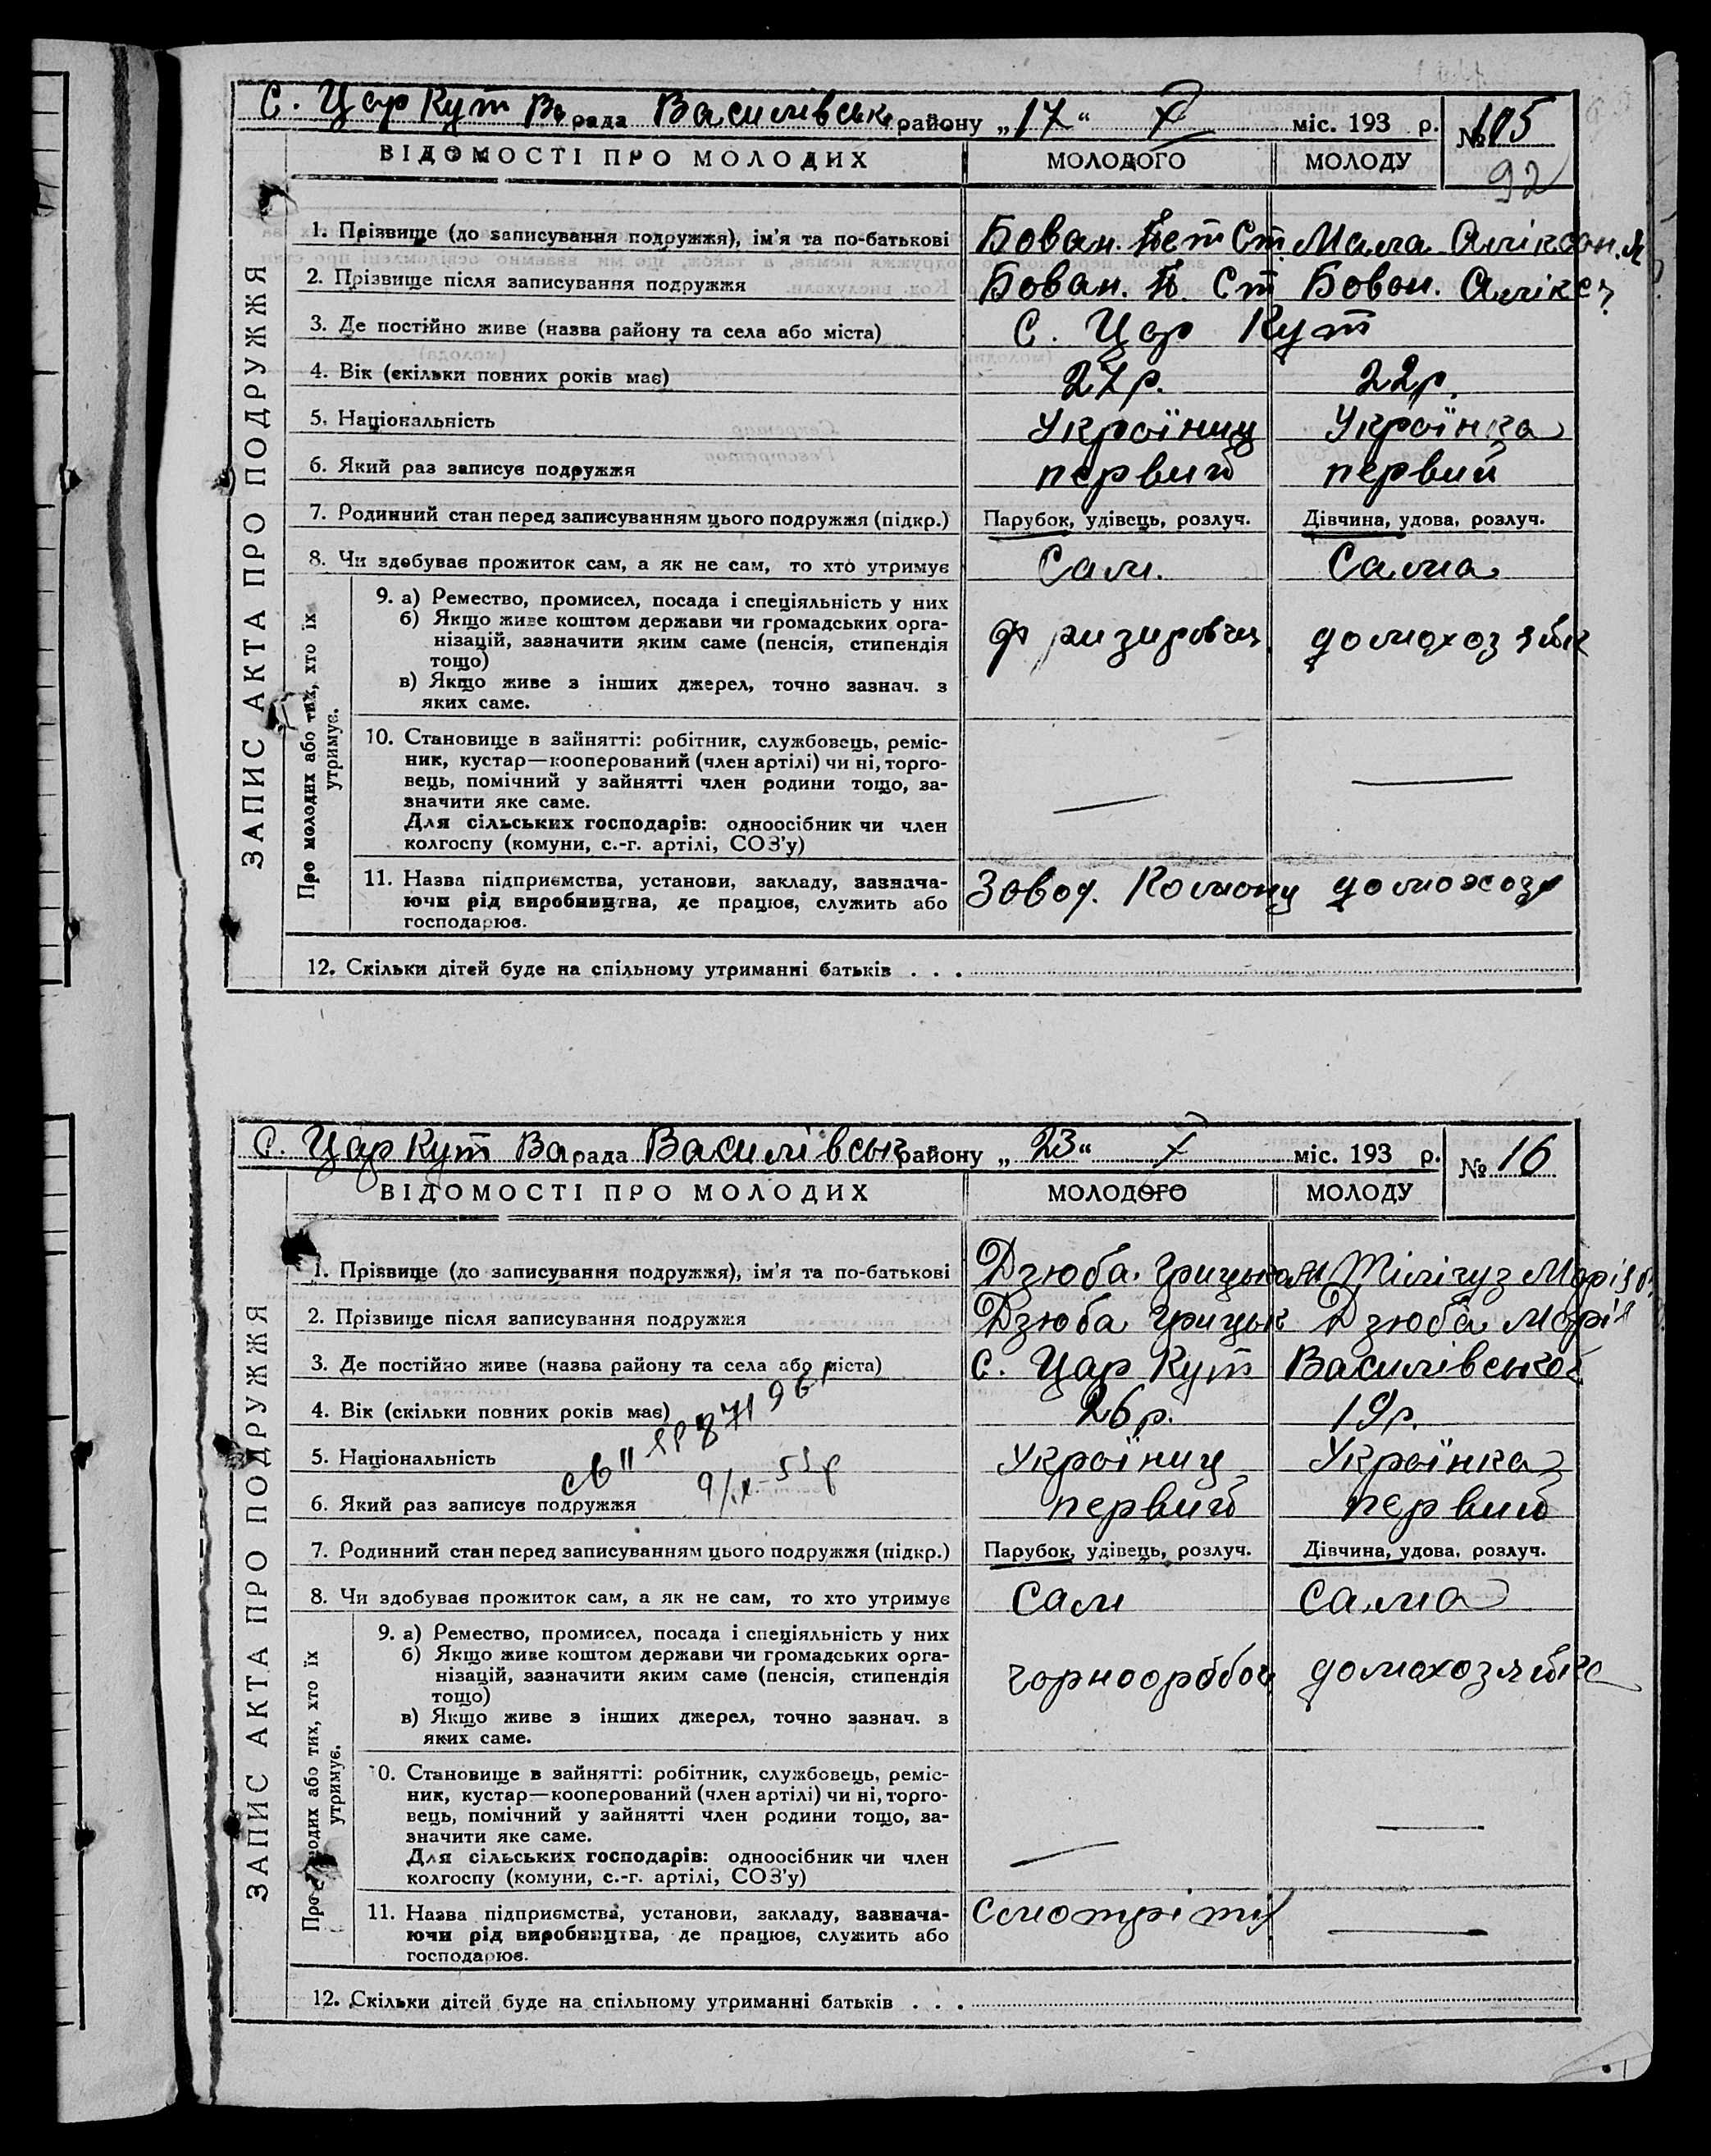 с. Цар Кут Ва рада Василівськ району „17“ X міс. 193 р. № 105
92
ВІДОМОСТІ ПРО МОЛОДИХ МОЛОДОГО МОЛОДУ
ЗАПИС АКТА ПРО ПОДРУЖЖЯ
1. Прізвище (до записування подружжя), ім’я та по-батькові Бован. Пет Ст. Мала Аліксан.
2. Прізвище після записування подружжя Бован. П. Ст Бован. Алікс
3. Де постійно живе (назва району та села або міста) с. Цар Кут
4. Вік (скільки повних років має) 27р. 22р.
5. Національність Україниц Українка
6. Який раз записує подружжя первий первий
7. Родинний стан перед записуванням цього подружжя (підкр.) Парубок, удівець, розлуч. Дівчина, удова, розлуч.
8. Чи здобуває прожиток сам, а як не сам, то хто утримує Сам. Сама
Про молодих або тих, хто їх утримує.
9. а) Ремество, промисел, посада і спеціяльність у них
б) Якщо живе коштом держави чи громадських орга-
нізацій, зазначити яким саме (пенсія, стипендія домохозяйк
тощо)
в) Якщо живе з інших джерел, точно зазнач. з
яких саме.
10. Становище в зайнятті: робітник, службовець, реміс-
ник, кустар—кооперований (член артілі) чи ні, торго-
вець, помічний у зайнятті член родини тощо, за-
значити яке саме.
Для сільських господарів: одноосібник чи член
колгоспу (комуни, с.-г. артілі, СОЗ’у)
11. Назва підприємства, установи, закладу, зазнача- Завод. Комону домохозя
ючи рід виробництва, де працює, служить або
господарює.
12. Скільки дітей буде на спільному утриманні батьків . . .
с. Цар Кут Ва рада Василівськ району „23“ X міс. 193 р. № 16
ВІДОМОСТІ ПРО МОЛОДИХ МОЛОДОГО МОЛОДУ
ЗАПИС АКТА ПРО ПОДРУЖЖЯ
1. Прізвище (до записування подружжя), ім’я та по-батькові Дзюба. Грицько Тілігуз Марія
2. Прізвище після записування подружжя Дзюба Грицьк Дзюба Марія
3. Де постійно живе (назва району та села або міста) с. Цар Кут Василівської
4. Вік (скільки повних років має) 26р. 19р.
5. Національність Україниц Українка
6. Який раз записує подружжя первий первий
7. Родинний стан перед записуванням цього подружжя (підкр.) Парубок, удівець, розлуч. Дівчина, удова, розлуч.
8. Чи здобуває прожиток сам, а як не сам, то хто утримує Сам Сама
9. а) Ремество, промисел, посада і спеціяльність у них
б) Якщо живе коштом держави чи громадських орга-
нізацій, зазначити яким саме (пенсія, стипендія чорноорбоч домохозяйка
тощо)
в) Якщо живе з інших джерел, точно зазнач. з
яких саме.
10. Становище в зайнятті: робітник, службовець, реміс-
ник, кустар—кооперований (член артілі) чи ні, торго-
вець, помічний у зайнятті член родини тощо, за-
значити яке саме.
Для сільських господарів: одноосібник чи член
колгоспу (комуни, с.-г. артілі, СОЗ’у)
11. Назва підприємства, установи, закладу, зазнача-
ючи рід виробництва, де працює, служить або
господарює.
12. Скільки дітей буде на спільному утриманні батьків . . .